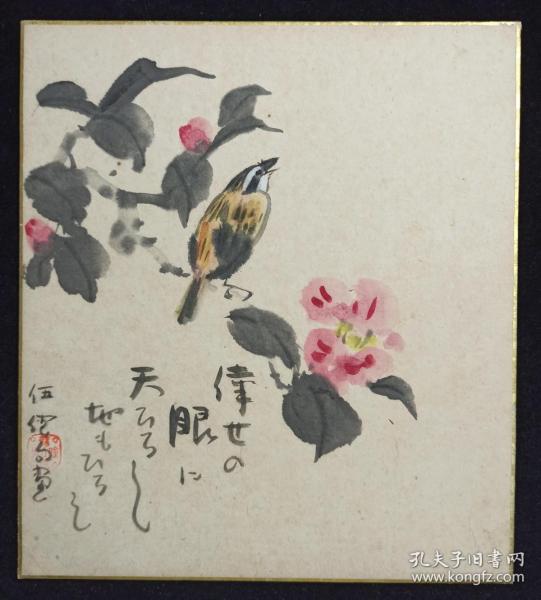 倖せの
眼に
天ひろし
地もひろし
画
孔夫子旧书网
www.kongfz.com